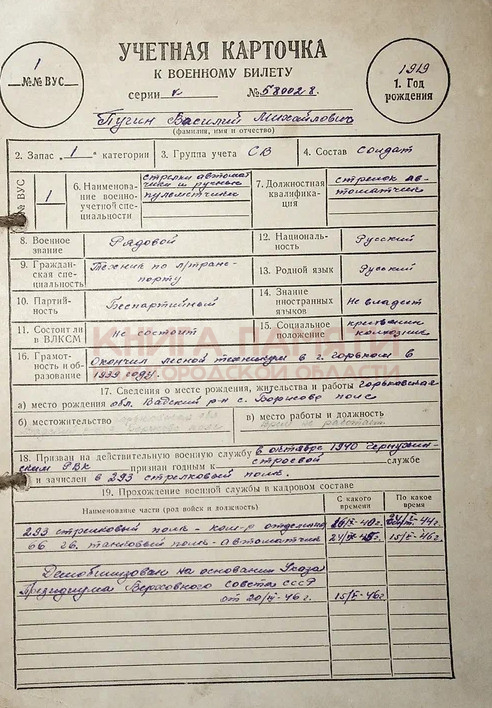 УЧЕТНАЯ КАРТОЧКА
К ВОЕННОМУ БИЛЕТУ
серии № 580028.
1
№№ ВУС
1919
1. Год
рождения
Пугин Василий Михайлович
(фамилия, имя и отчество)
2. Запас „1“ категории
3. Группа учета СВ
4. Состав солдат
№ ВУС
1
6. Наименова-
ние военно-
учетной спе-
циальности
стрелки автомат
чики и ручные
пулеметчики
7. Должностная
квалифика-
ция
стрелок ав-
томатчик
8. Военное
звание
Рядовой
12. Националь-
ность
Русский
9. Граждан-
ская спе-
циальность
Техник по л/транс-
порту
13. Родной язык
Русский
10. Партий-
ность
Беспартийный
14. Знание
иностранных
языков
Не владеет
11. Состоит ли
в ВЛКСМ
Не состоит
15. Социальное
положение
колхозник
КНИГА ПАМЯТИ
НИЖЕГОРОДСКОЙ ОБЛАСТИ
16. Грамот-
ность и об-
разование
Окончил лесной техникум в г. Горьком в
1939 году.
17. Сведения о месте рождения, жительства и работы Горьковская
а) место рождения обл. Вадский р-н с. Борисово поле
б) местожительство
в) место работы и должность
18. Призван на действительную военную службу в октябре 1940
РВК признан годным к строевой службе
и зачислен в 293 стрелковый полк.
19. Прохождение военной службы в кадровом составе
Наименование части (род войск и должность)
С какого
времени
По какое
время
293 стрелковый полк - ком-р отделения
гв. танковый полк - автоматчик
Демобилизован на основании Указа
Президиума Верховного Совета СССР
от 20/III-46 г.